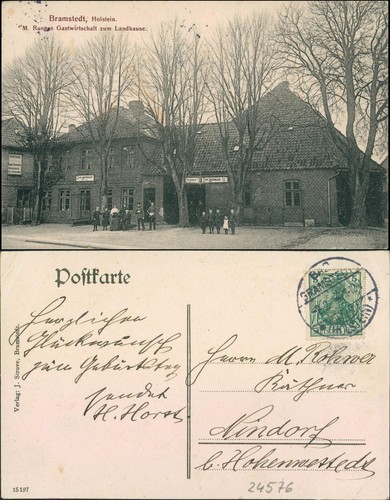 Bramstedt, Holstein.
M. Runges Gastwirtschaft zum Landhause.
Postkarte
Herzlichen
Glückwunsch
zum Geburtstag
sendet
H. Horst
Herrn M. Rohwer
Käthner
Nindorf
b. Hohenwestedt
Verlag: J. Struve, Bramstedt.
15197
24576